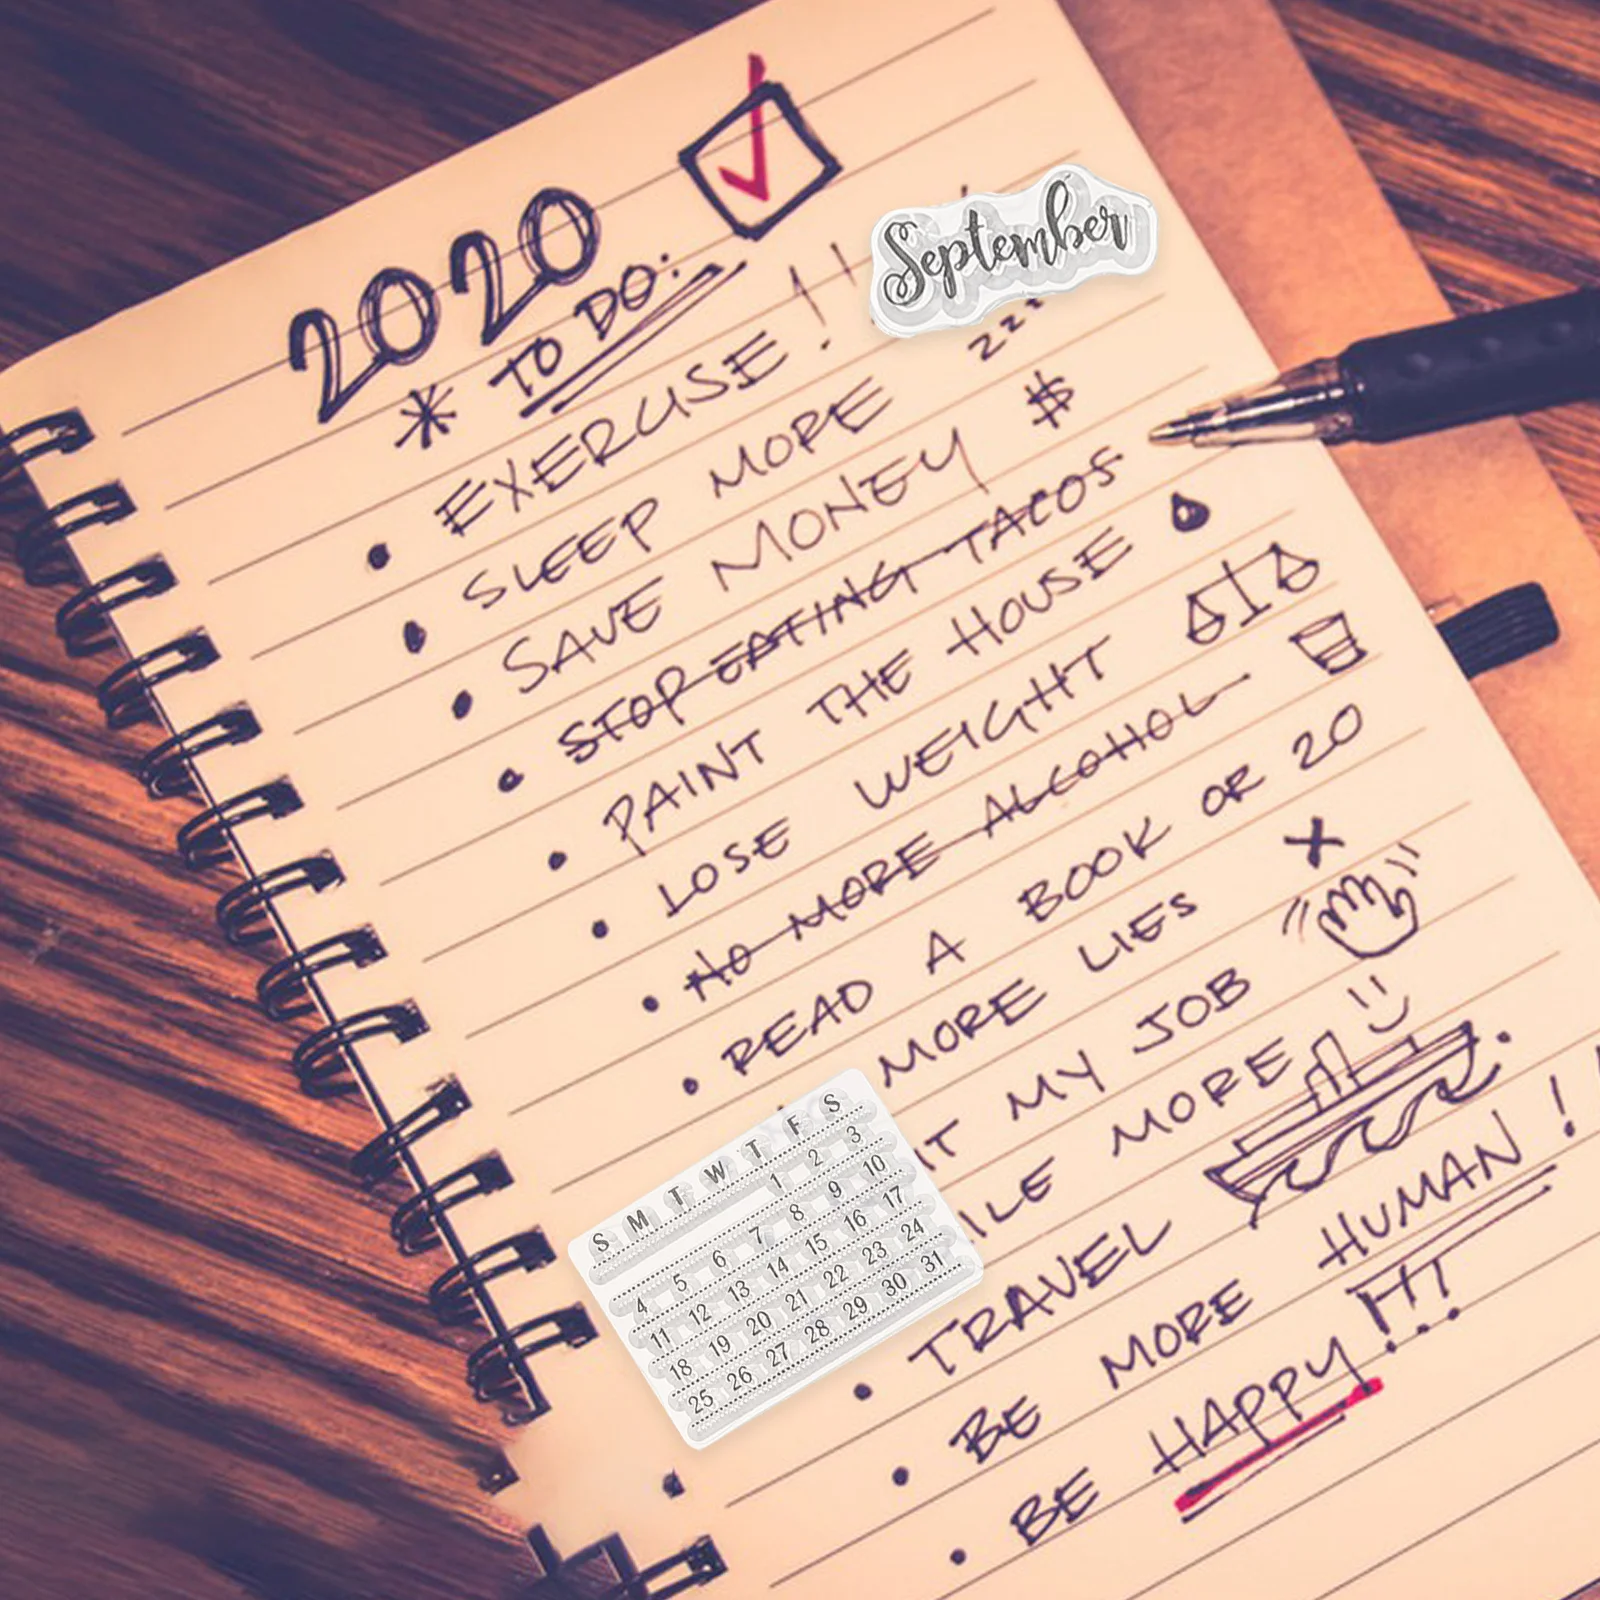 2020
* TO DO:
• EXERCISE!!!
September
• SLEEP MORE zzz
• SAVE MONEY $
• STOP EATING TACOS
• PAINT THE HOUSE
• LOSE WEIGHT
• NO MORE ALCOHOL
• READ A BOOK OR 20
MORE LIES X
MY JOB
MORE
• TRAVEL
• BE MORE HUMAN!
• BE HAPPY!!!
S M T W T F S
1 2 3
4 5 6 7 8 9 10
11 12 13 14 15 16 17
18 19 20 21 22 23 24
25 26 27 28 29 30 31